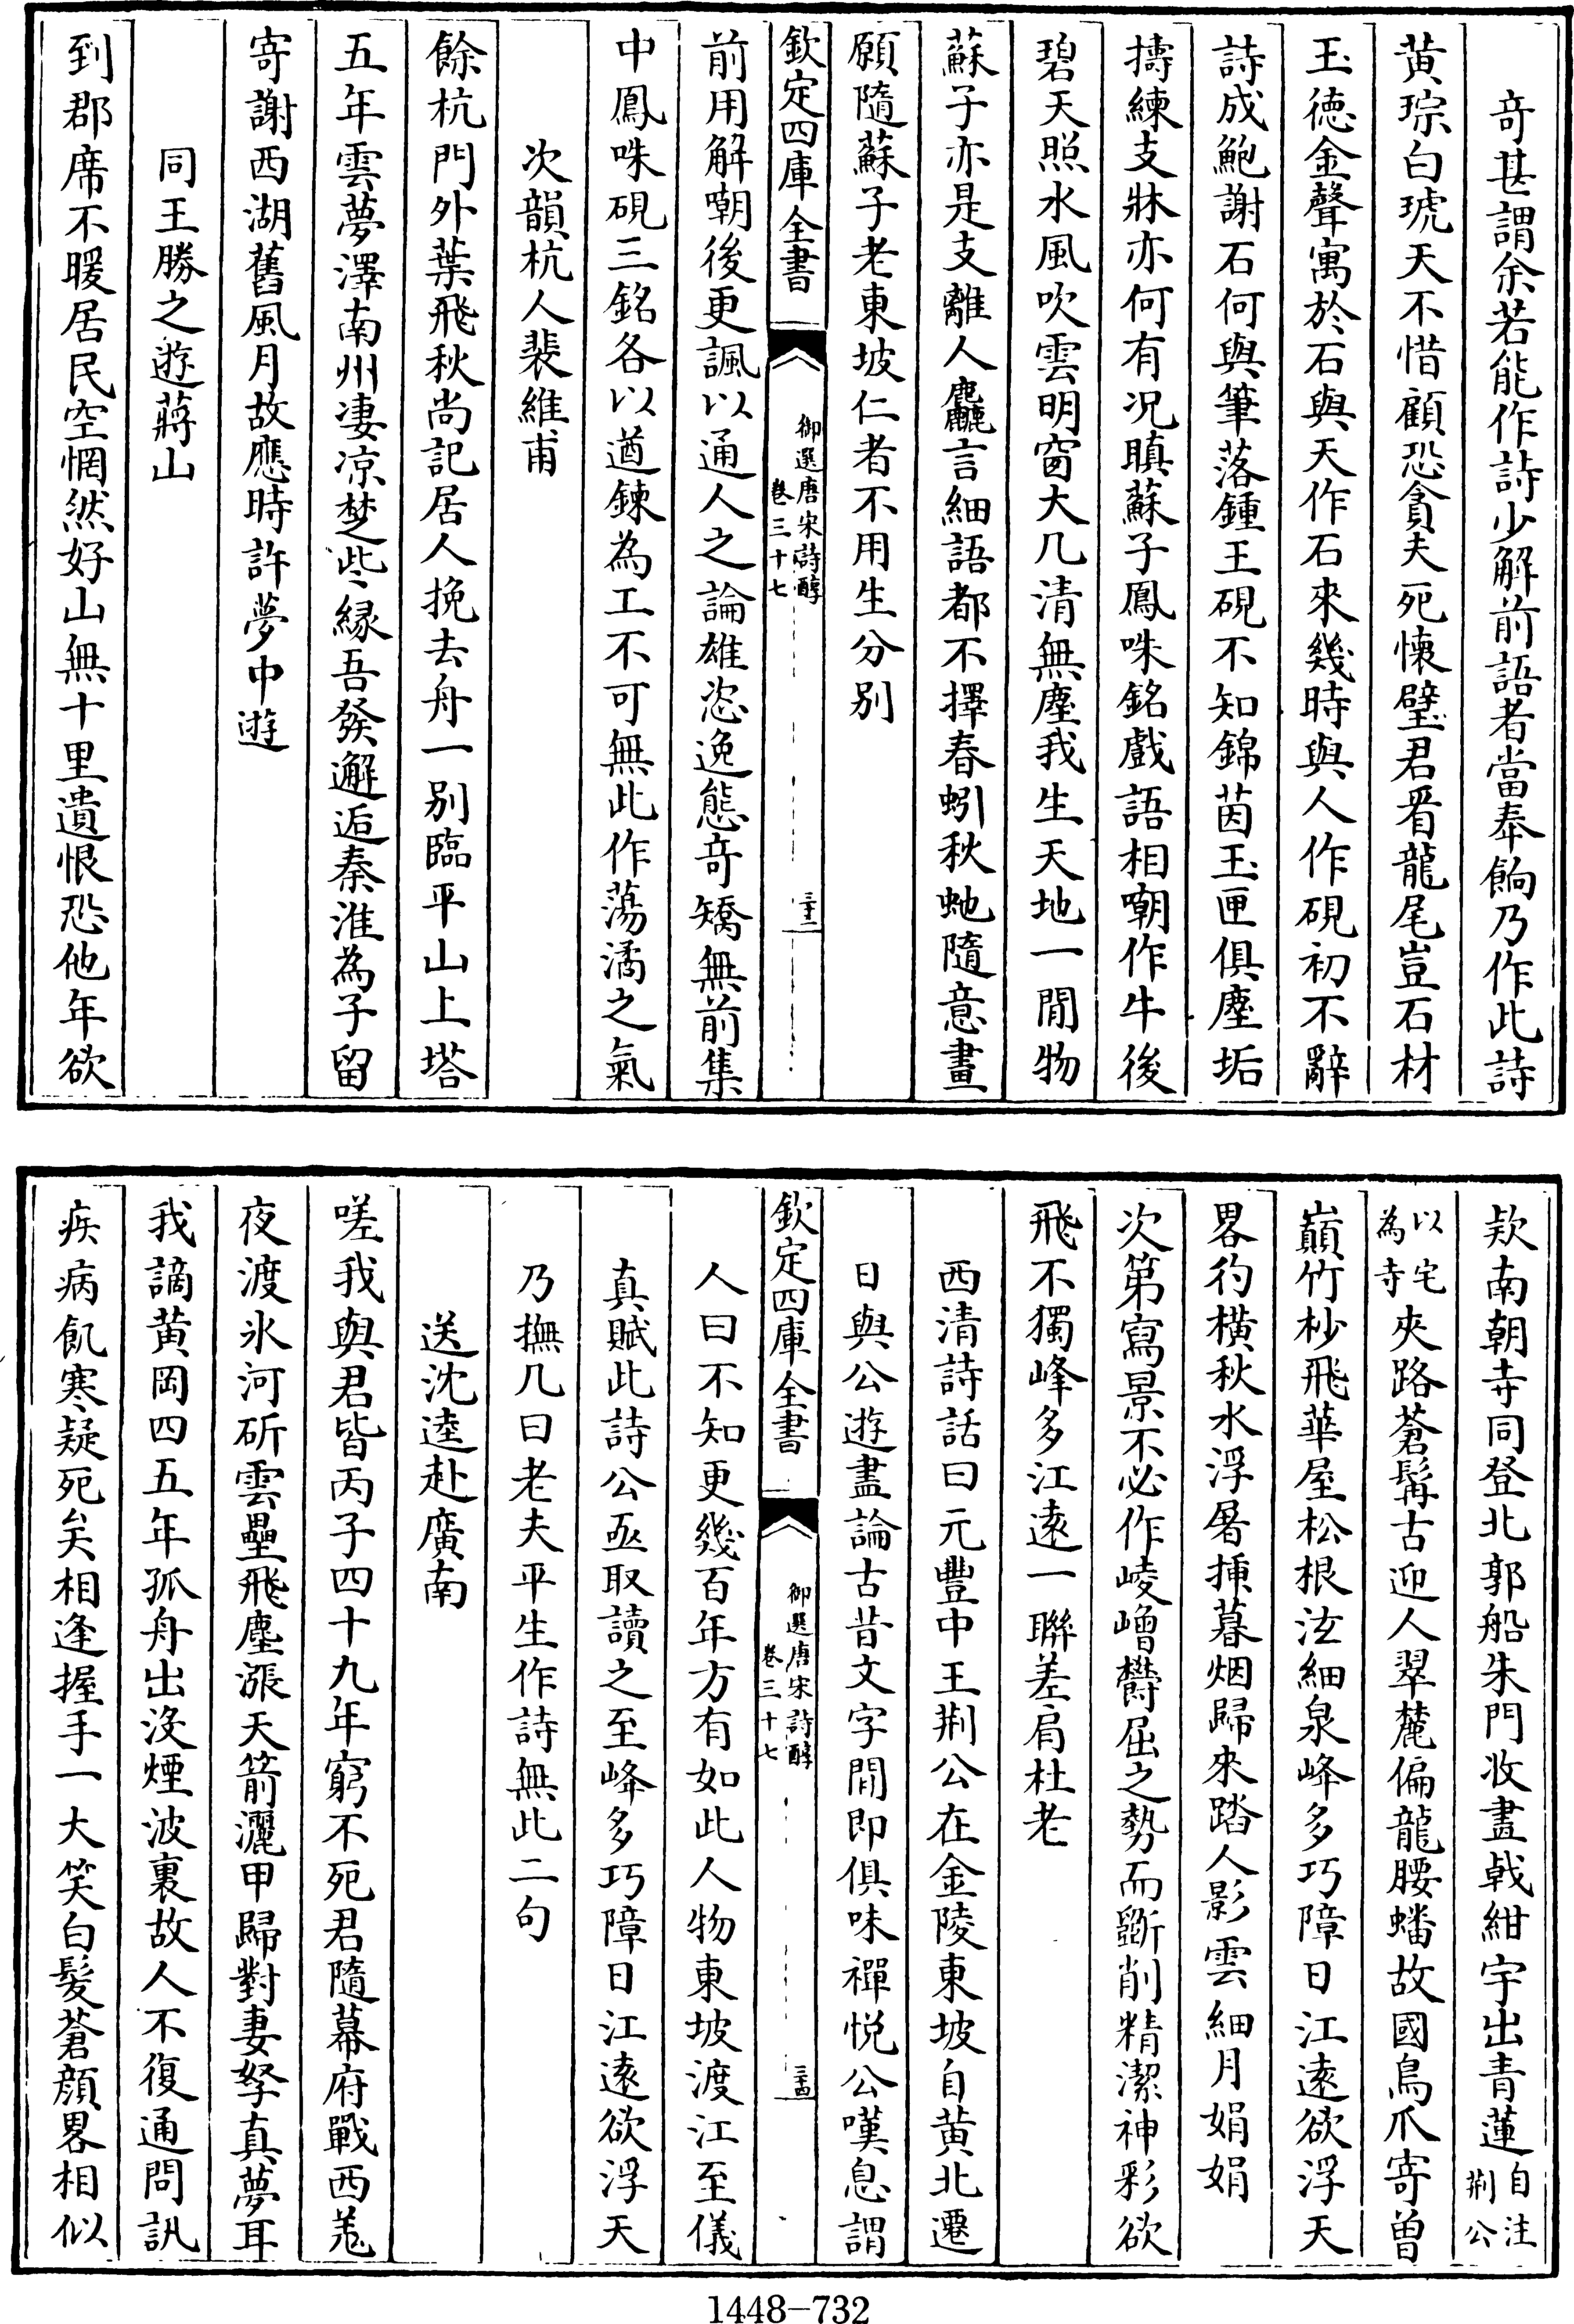 奇甚謂余若能作詩少解前語者當奉餉乃作此詩
黃琮白琥天不惜顧恐貪夫死懷璧君看龍尾豈石材
玉德金聲寓於石與天作石來幾時與人作硯初不辭
詩成鮑謝石何與筆落鍾王硯不知錦茵玉匣俱塵垢
擣練支牀亦何有况瞋蘇子鳳咮銘戲語相嘲作牛後
碧天照水風吹雲明窗大几清無塵我生天地一閒物
蘇子亦是支離人麤言細語都不擇春蚓秋虵隨意畫
願隨蘇子老東坡仁者不用生分别
欽定四庫全書
御選唐宋詩醇
卷三十七
三十三
前用解嘲後更諷以通人之論雄恣逸態奇矯無前集
中鳳咮硯三銘各以遒鍊為工不可無此作蕩潏之氣
次韻杭人裴維甫
餘杭門外葉飛秋尚記居人挽去舟一别臨平山上塔
五年雲夢澤南州凄凉楚些縁吾發邂逅秦淮為子留
寄謝西湖舊風月故應時許夢中遊
同王勝之遊蔣山
到郡席不暖居民空惘然好山無十里遺恨恐他年欲
欵南朝寺同登北郭船朱門收畫戟紺宇出青蓮自注荆公
以宅為寺夾路蒼髯古迎人翠麓偏龍腰蟠故國鳥爪寄曾
巔竹杪飛華屋松根泫細泉峰多巧障日江遠欲浮天
畧彴横秋水浮屠插暮烟歸來踏人影雲細月娟娟
次第寫景不必作崚嶒欝屈之勢而斵削精潔神彩欲
飛不獨峰多江遠一聯差肩杜老
西清詩話曰元豐中王荆公在金陵東坡自黃北遷
日與公遊盡論古昔文字閒即俱味禪悦公嘆息謂
欽定四庫全書
御選唐宋詩醇
卷三十七
三十四
人曰不知更幾百年方有如此人物東坡渡江至儀
真賦此詩公亟取讀之至峰多巧障日江遠欲浮天
乃撫几曰老夫平生作詩無此二句
送沈逵赴廣南
嗟我與君皆丙子四十九年窮不死君隨幕府戰西羌
夜渡氷河斫雲壘飛塵漲天箭灑甲歸對妻孥真夢耳
我謫黃岡四五年孤舟出没煙波裏故人不復通問訊
疾病飢寒疑死矣相逢握手一大笑白髮蒼顔畧相似
1448-732